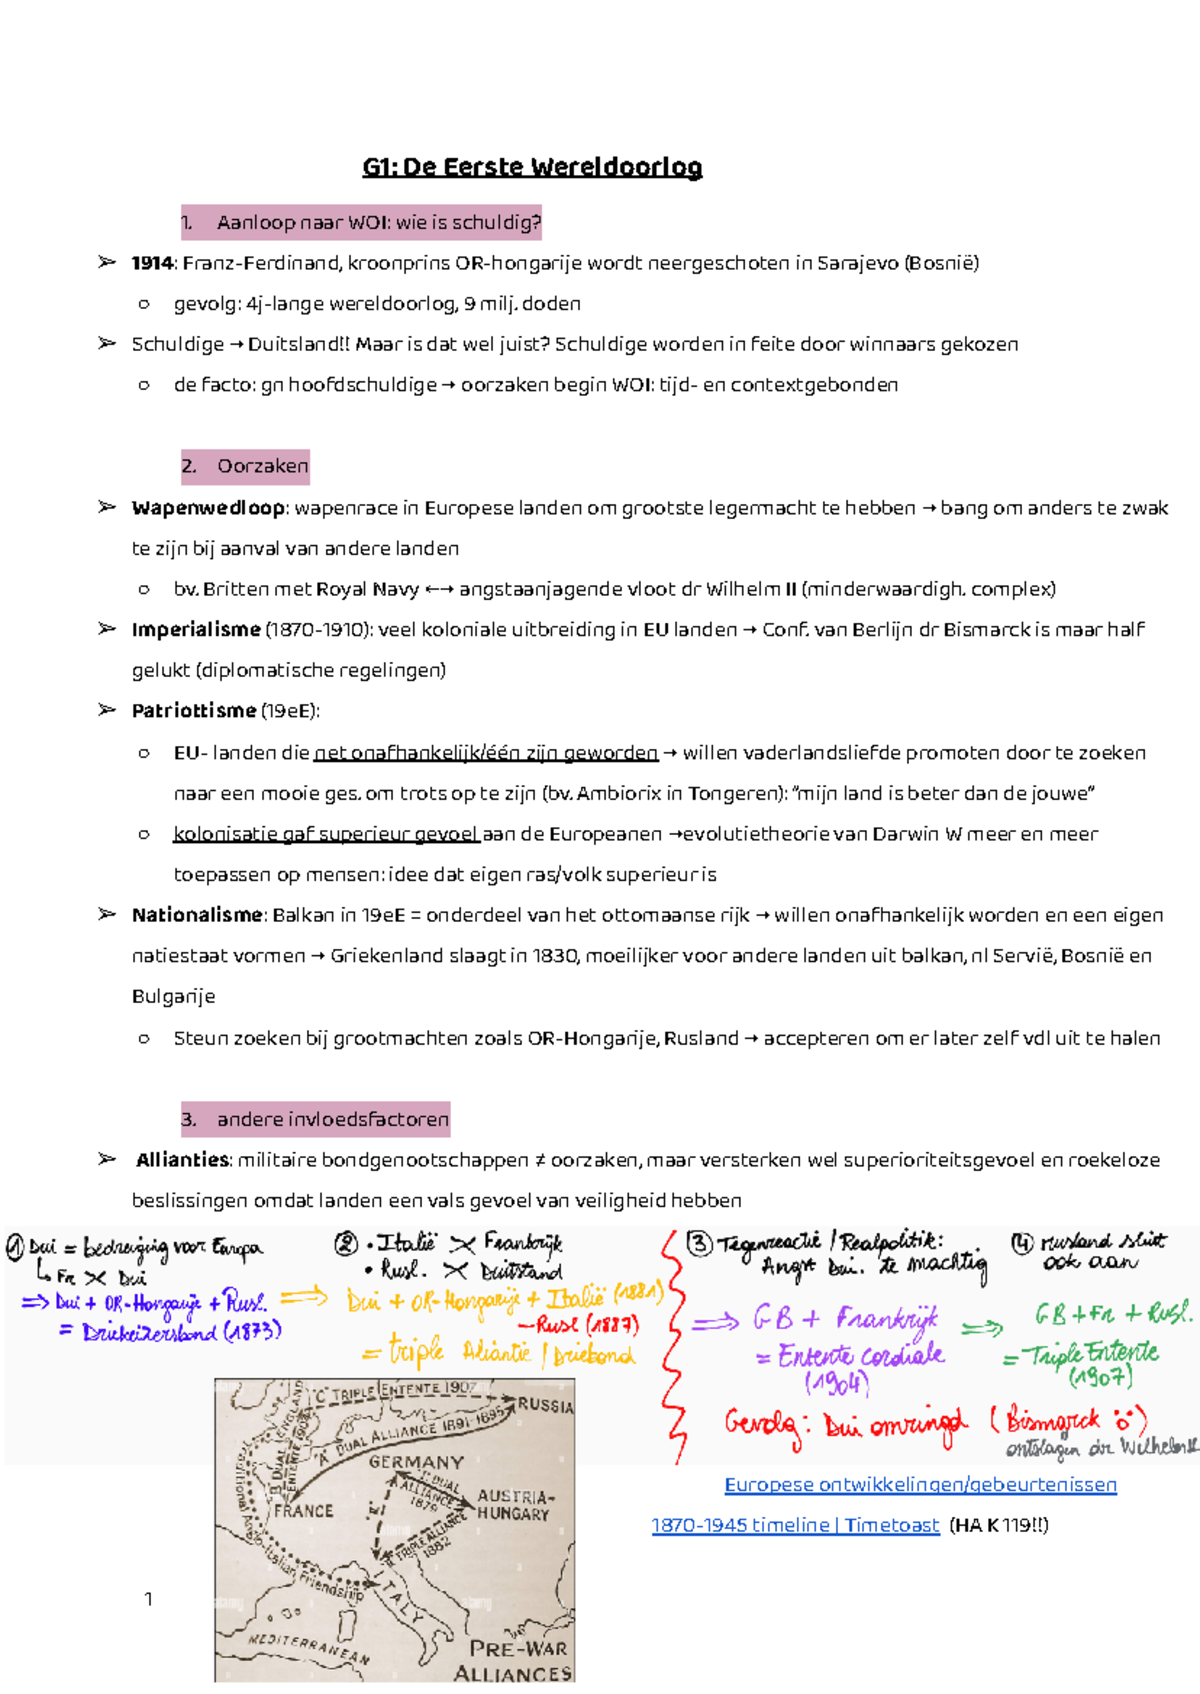 G1: De Eerste Wereldoorlog
1. Aanloop naar WOI: wie is schuldig?
➢ 1914: Franz-Ferdinand, kroonprins OR-hongarije wordt neergeschoten in Sarajevo (Bosnië)
○ gevolg: 4j-lange wereldoorlog, 9 milj. doden
➢ Schuldige → Duitsland!! Maar is dat wel juist? Schuldige worden in feite door winnaars gekozen
○ de facto: gn hoofdschuldige → oorzaken begin WOI: tijd- en contextgebonden
2. Oorzaken
➢ Wapenwedloop: wapenrace in Europese landen om grootste legermacht te hebben → bang om anders te zwak
te zijn bij aanval van andere landen
○ bv. Britten met Royal Navy ←→ angstaanjagende vloot dr Wilhelm II (minderwaardigh. complex)
➢ Imperialisme (1870-1910): veel koloniale uitbreiding in EU landen → Conf. van Berlijn dr Bismarck is maar half
gelukt (diplomatische regelingen)
➢ Patriottisme (19eE):
○ EU- landen die net onafhankelijk/één zijn geworden → willen vaderlandsliefde promoten door te zoeken
naar een mooie ges. om trots op te zijn (bv. Ambiorix in Tongeren): “mijn land is beter dan de jouwe”
○ kolonisatie gaf superieur gevoel aan de Europeanen →evolutietheorie van Darwin W meer en meer
toepassen op mensen: idee dat eigen ras/volk superieur is
➢ Nationalisme: Balkan in 19eE = onderdeel van het ottomaanse rijk → willen onafhankelijk worden en een eigen
natiestaat vormen → Griekenland slaagt in 1830, moeilijker voor andere landen uit balkan, nl Servië, Bosnië en
Bulgarije
○ Steun zoeken bij grootmachten zoals OR-Hongarije, Rusland → accepteren om er later zelf vdl uit te halen
3. andere invloedsfactoren
➢ Allianties: militaire bondgenootschappen ≠ oorzaken, maar versterken wel superioriteitsgevoel en roekeloze
beslissingen omdat landen een vals gevoel van veiligheid hebben
① Dui = bedreiging voor Europa
↳ Fr >< Dui
⇒ Dui + OR-Hongarije + Rusl.
= Driekeizersbond (1873)
⇒
② • Italië >< Frankrijk
• Rusl. >< Duitsland
Dui + OR-Hongarije + Italië (1881)
– Rusl (1887)
= triple Aliantie / Driebond
③ Tegenreactie / Realpolitik:
Angst Dui. te machtig
⇒ GB + Frankrijk
= Entente cordiale
(1904)
④ Rusland sluit
ook aan
⇒ GB + Fr + Rusl.
= Triple Entente
(1907)
Gevolg: Dui omringd (Bismarck)
ontslagen dr Wilhelm II
"C" TRIPLE ENTENTE 1907
RUSSIA
ENGLAND
"B" DUAL ENTENTE 1904
"A" DUAL ALLIANCE 1891-1895
GERMANY
DUAL ALLIANCE 1879
AUSTRIA-HUNGARY
FRANCE
TRIPLE ALLIANCE 1882
Anglo-Italian Friendship
ITALY
MEDITERRANEAN
PRE-WAR
ALLIANCES
alamy
Europese ontwikkelingen/gebeurtenissen
1870-1945 timeline | Timetoast (HA K 119!!)
1